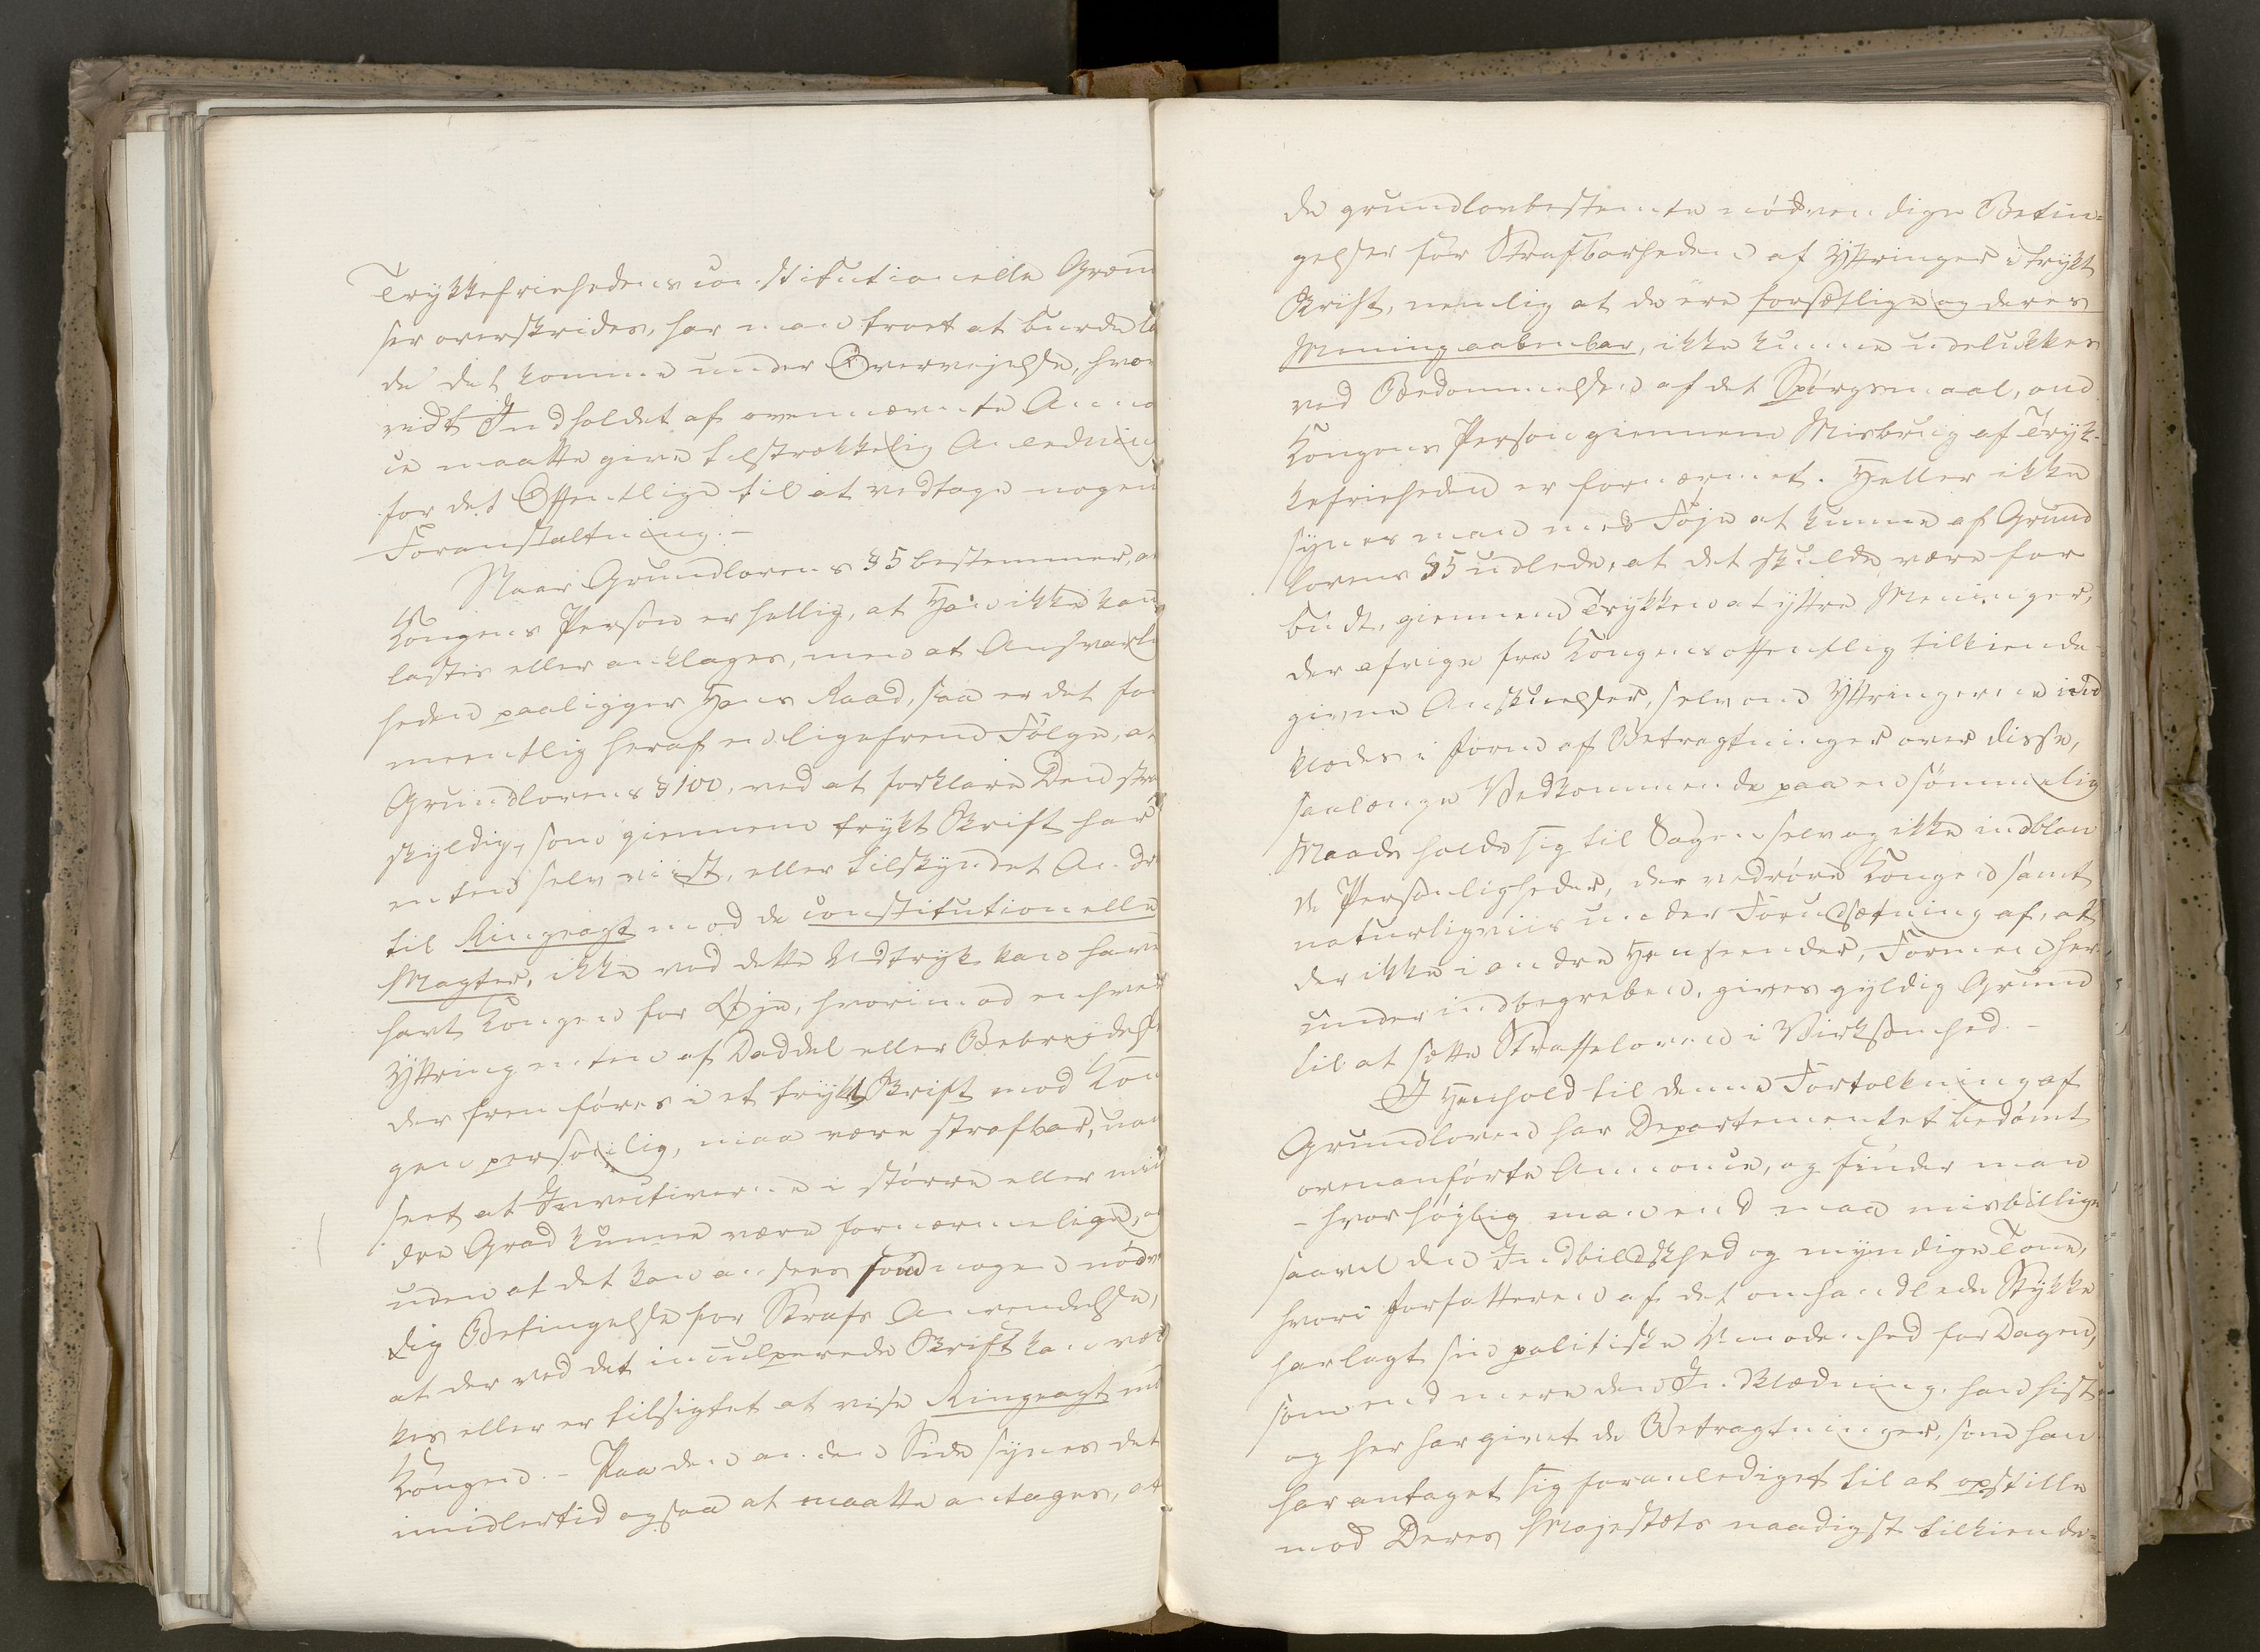 Trykkefriehedens constitutionelle Græn
ser overskrides, har man troet at burde la
de det komme under Overvejelse, hvor
vidt Indholdet af ovennævnte Anno
ce maatte give tilstrækkelig Anledning
for det Offentlige til at vedtage nogen
Foranstaltning. –
Naar Grundlovens § 5 bestemmer, a
Kongens Person er hellig, at Han ikke kan
lastes eller anklages, men at Ansvarlig
heden paaligger Hans Raad, saa er det for
meentlig heraf en ligefrem Følge, at
Grundlovens § 100, ved at forklare Den straf
skyldig, som giennem trykt Skrift har
enten selv viist, eller tilskyndet Andre
til Ringeagt mod de constitutionelle
Magter, ikke ved dette Udtryk kan have
havt Kongen for Øje, hvorimod enhver
Yttring enten af Daddel eller Bebrejdelse
der fremføres i et trykt Skrift mod Kon
gen personlig, maa være strafbar, uan
seet at Invectiverne i større eller min
dre Grad kunne være fornærmelige, og
uden at det kan ansees som nogen nødven
dig Betingelse for Strafs Anvendelse,
at der ved det inculperede Skrift kan væk
kes eller er tilsigtet at vise Ringeagt mod
Kongen. – Paa den anden Side synes det
imidlertid ogsaa at maatte antages, at
de grundlovbestemte nødvendige Betin=
gelser for Strafbarheden af Yttringer i trykt
Skrift, nemlig at de ere forsætlige og deres
Mening aabenbar, ikke kunne udelukkes
ved Bedømmelsen af det Spørgsmaal, om
Kongens Person giennem Misbrug af Tryk-
kefrieheden er fornærmet. Heller ikke
synes man med Føje at kunne af Grund
lovens § 5 udlede, at det skulde være for
budt, giennem Trykken at yttre Meninger,
der afvige fra Kongens offentlig tilkiende-
givne Anskuelser, selv om Yttringerne ind
klædes i Form af Betragtninger over disse,
saalænge Vedkommende paa en sømmelig
Maade holde sig til Sagen selv og ikke indblan
de Personligheder, der vedrøre Kongen samt
naturligviis under Forudsætning af, at
der ikke i andre Henseender, Formen her
under indbegreben, gives gyldig Grund
til at sætte Straffeloven i Virksomhed. –
I Henhold til denne Fortolkning af
Grundloven har Departementet bedømt
ovenanførte Annonce, og finder man
– hvor høylig man end maa misbillige
saavel den Indbildskhed og myndige Tone,
hvori Forfatteren af det omhandlede Stykke
har lagt sin politiske Umodenhed for Dagen,
som end mere den Indklædning han hist
og her har givet de Betragtninger, som han
har antaget sig foranlediget til at opstille
mod Deres Majestæts naadigst tilkiende=